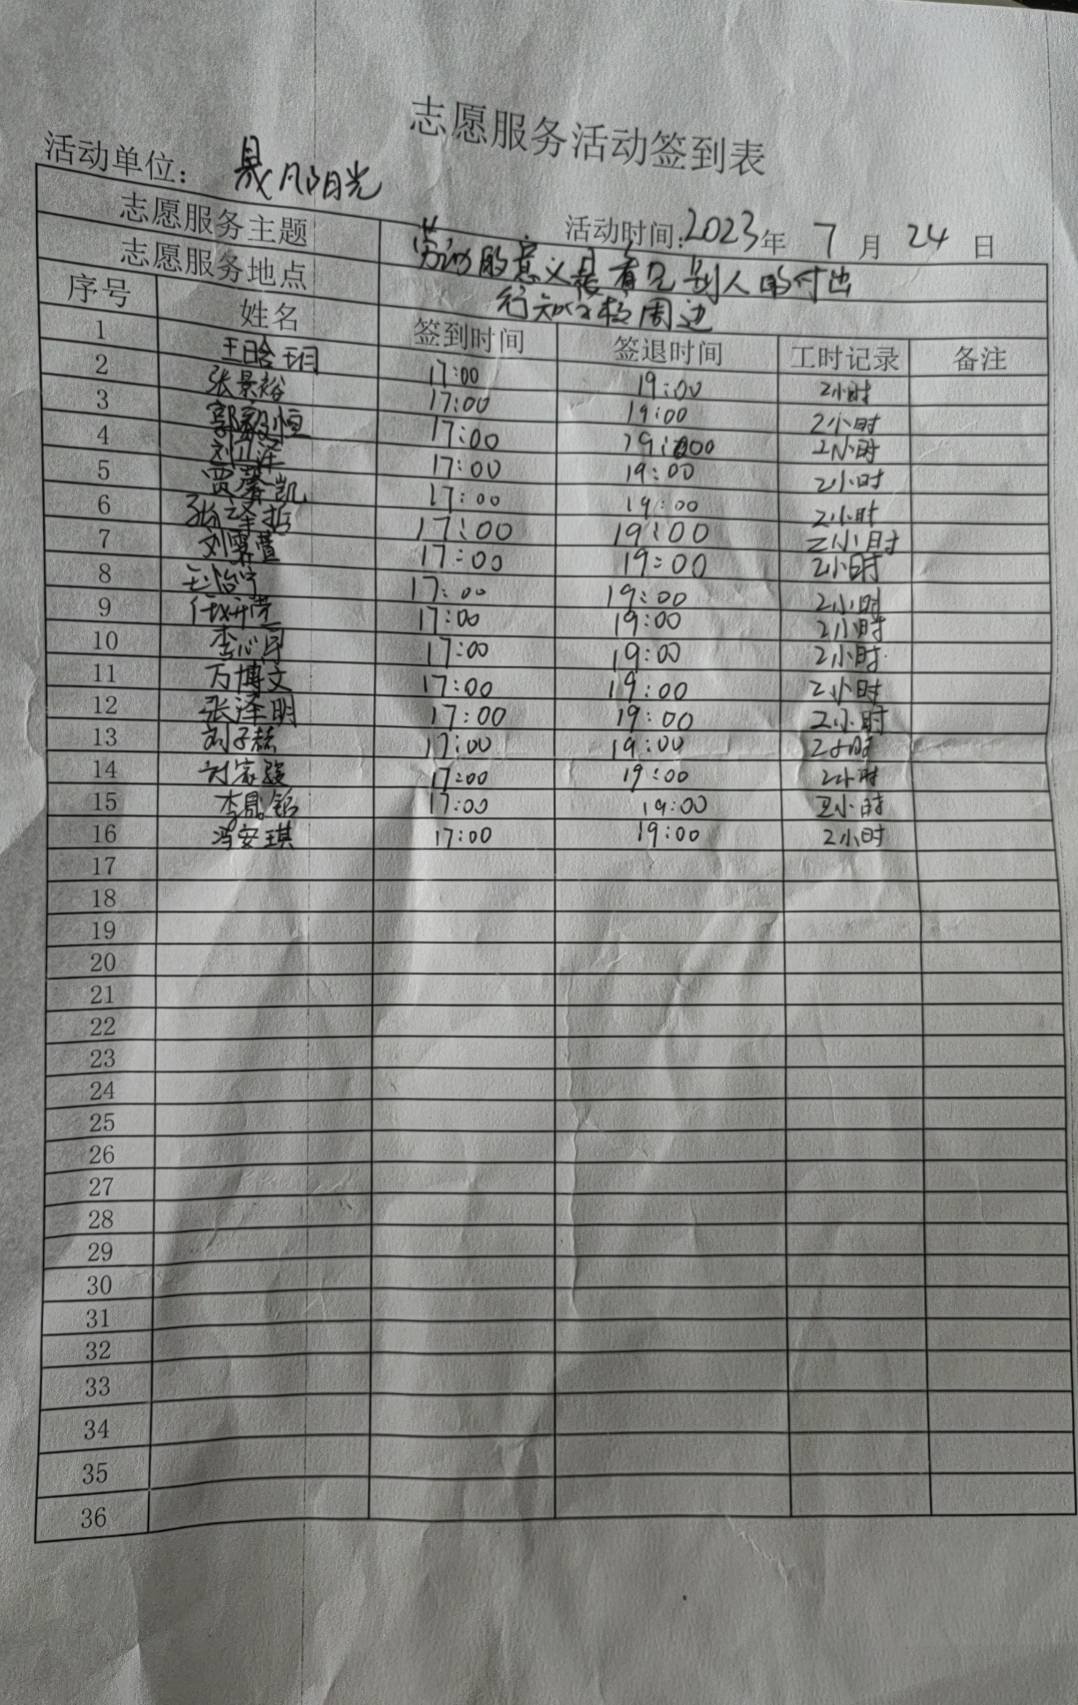 志愿服务活动签到表
活动单位： 晟凡阳光
活动时间：2023年 7 月 24 日
志愿服务主题 劳动的意义是看见别人的付出
志愿服务地点 行知学校周边
序号 姓名 签到时间 签退时间 工时记录 备注
1 王晗玥 17:00 19:00 2小时
2 张景裕 17:00 19:00 2小时
3 郭毅恒 17:00 19:00 2小时
4 17:00 19:00 2小时
5 贾馨凯 17:00 19:00 2小时
6 17:00 19:00 2小时
7 刘霁萱 17:00 19:00 2小时
8 王怡宁 17:00 19:00 2小时
9 17:00 19:00 2小时
10 17:00 19:00 2小时
11 万博文 17:00 19:00 2小时
12 张泽明 17:00 19:00 2小时
13 17:00 19:00 2小时
14 刘家骏 17:00 19:00 2小时
15 17:00 19:00 2小时
16 冯安琪 17:00 19:00 2小时
17
18
19
20
21
22
23
24
25
26
27
28
29
30
31
32
33
34
35
36